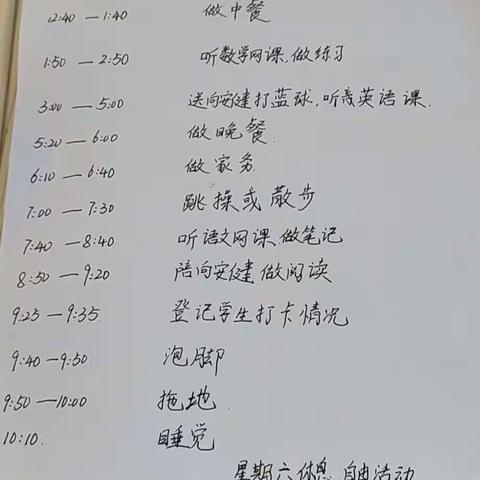 12:40 — 1:40 做中餐
1:50 — 2:50 听数学网课.做练习
3:00 — 5:00 送向安健打蓝球.听英语课.
5:20 — 6:00 做晚餐.
6:10 — 6:40 做家务
7:00 — 7:30 跳操或散步
7:40 — 8:40 听语文网课、做笔记
8:50 — 9:20 陪向安健做阅读
9:25 — 9:35 登记学生打卡情况
9:40 — 9:50 泡脚
9:50 — 10:00 拖地.
10:10. 睡觉
星期六休息 自由活动